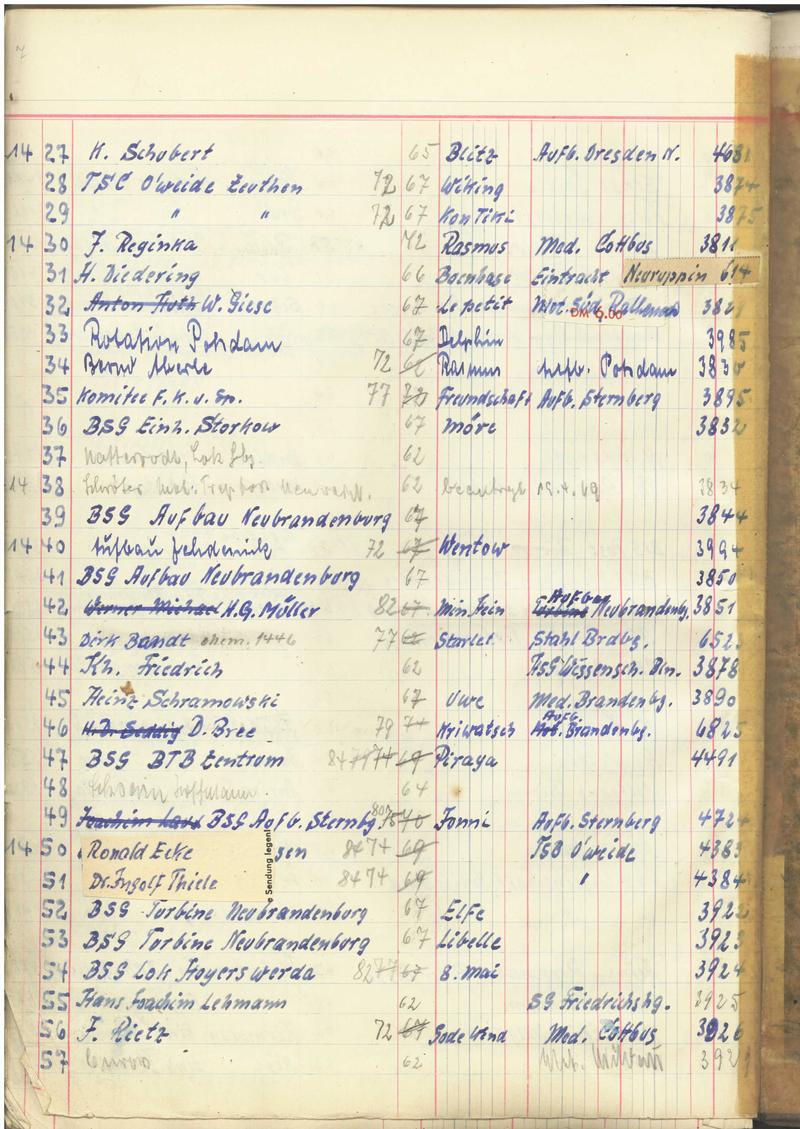 14 27 K. Schubert 65 Blitz Aufb. Dresden N. 4681
28 TSC O'weide Zeuthen 72 67 Wiking 3874
29 " " 72 67 Kon Tiki 3875
14 30 J. Reginka 72 Rasmus Med. Cottbus 3811
31 H. Diedering 66 Boenhase Eintracht Neuruppin 614
32 Anton Huth W. Giese 67 Le petit Mot. Süd 382
DM 9.00
33 Rotation Potsdam 67 Delphin 3985
34 Bernd Aberle 72 Rasmus Potsdam 3830
35 Komitee F. K. u. Sp. 77 72 Freundschaft Aufb. Sternberg 3895
36 BSG Einh. Storkow 67 Möve 3832
37 62
14 38 Schröter 62 beantragt 19.4.69 3834
39 BSG Aufbau Neubrandenburg 67 3844
14 40 Aufbau Zehdenick 72 67 Wentow 3994
41 BSG Aufbau Neubrandenburg 67 3850
42 Werner Michael H.G. Müller 82 67 Min Hein Turbine Aufbau Neubrandenbg. 3851
43 Dirk Bandt ehem. 1446 77 Starlet Stahl Brdbg. 652
44 Kh. Friedrich 62 HSG Wissensch. Bln. 3878
45 Heinz Schramowski 67 Uwe Med. Brandenbg. 3890
46 H.D. Seddig D. Bree 79 74 Kriwatsch Aufb. Brandenbg. 6825
47 BSG BTB Zentrum 84 79 74 69 Piraya 4491
48 64
49 Joachim BSG Aufb. Sternbg 80 75 70 Jonni Aufb. Sternberg 4724
14 50 Ronald Ecke sen 84 74 69 TSB O'weide 4383
e Sendung legen!
51 Dr. Ingolf Thiele 84 74 69 " 4384
52 BSG Turbine Neubrandenburg 67 Elfe 3922
53 BSG Turbine Neubrandenburg 67 Libelle 3923
54 BSG Lok Hoyerswerda 82 77 67 8. Mai 3924
55 Hans Joachim Lehmann 62 SG Friedrichshg. 3925
56 J. Rietz 72 67 Gode Wind Med. Cottbus 3926
57 62 392